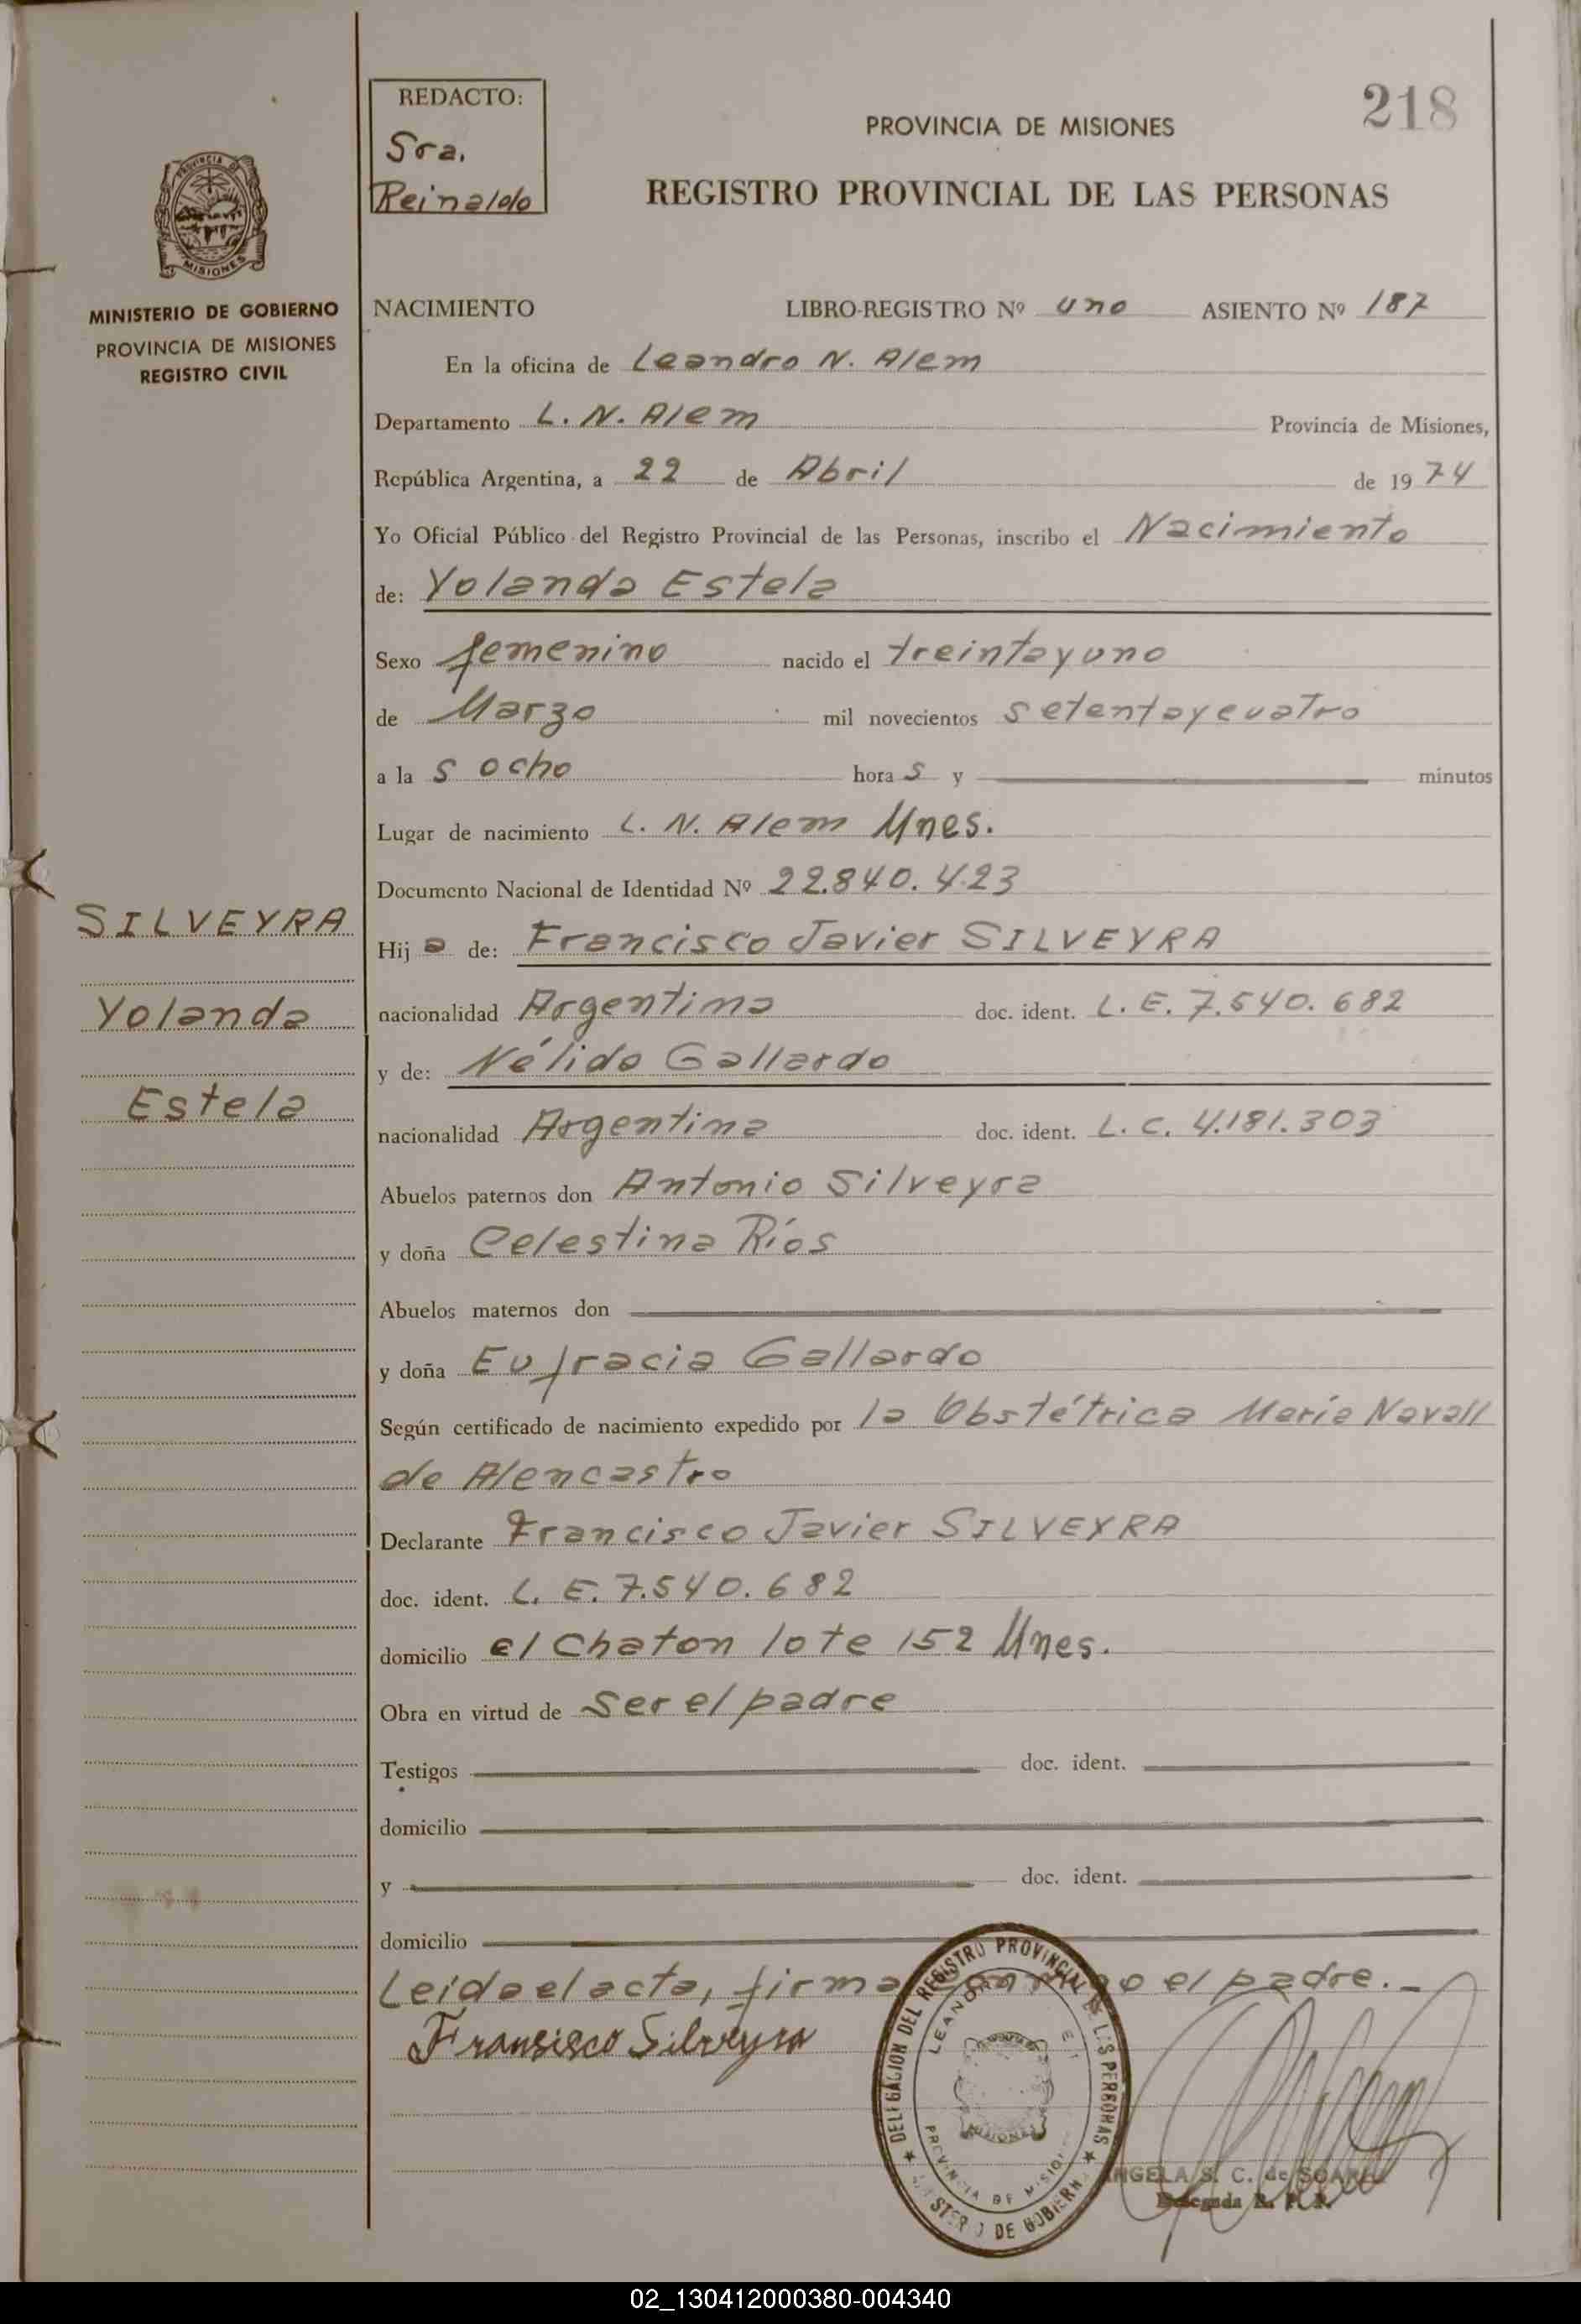 REDACTO:
Sra.
Reinaldo
218
PROVINCIA DE MISIONES
REGISTRO PROVINCIAL DE LAS PERSONAS
PROVINCIA DE
MISIONES
MINISTERIO DE GOBIERNO
PROVINCIA DE MISIONES
REGISTRO CIVIL
NACIMIENTO LIBRO-REGISTRO Nº uno ASIENTO Nº 187
En la oficina de Leandro N. Alem
Departamento L. N. Alem Provincia de Misiones,
República Argentina, a 22 de Abril de 1974
Yo Oficial Público del Registro Provincial de las Personas, inscribo el Nacimiento
de: Yolanda Estela
Sexo femenino nacido el treintayuno
de Marzo mil novecientos setentaycuatro
a la s ocho hora s y minutos
Lugar de nacimiento L. N. Alem Mnes.
Documento Nacional de Identidad Nº 22.840.423
SILVEYRA
Yolanda
Estela
Hij a de: Francisco Javier SILVEYRA
nacionalidad Argentina doc. ident. L. E. 7.540.682
y de: Nélida Gallardo
nacionalidad Argentina doc. ident. L. C. 4.181.303
Abuelos paternos don Antonio Silveyra
y doña Celestina Ríos
Abuelos maternos don
y doña Eufracia Gallardo
Según certificado de nacimiento expedido por la Obstétrica María Navall
de Alencastro
Declarante Francisco Javier SILVEYRA
doc. ident. L. E. 7.540.682
domicilio el Chaton lote 152 Mnes.
Obra en virtud de Ser el padre
Testigos doc. ident.
domicilio
y doc. ident.
domicilio
Leida el acta, firma conmigo el padre.
Fransisco Silveyra
DELEGACION DEL REGISTRO PROVINCIAL DE LAS PERSONAS
PROVINCIA DE MISIONES
MISIONES
DE GOBIERNO
ANGELA S. C. de SOARES
Delegada R. P. P.
02_130412000380-004340